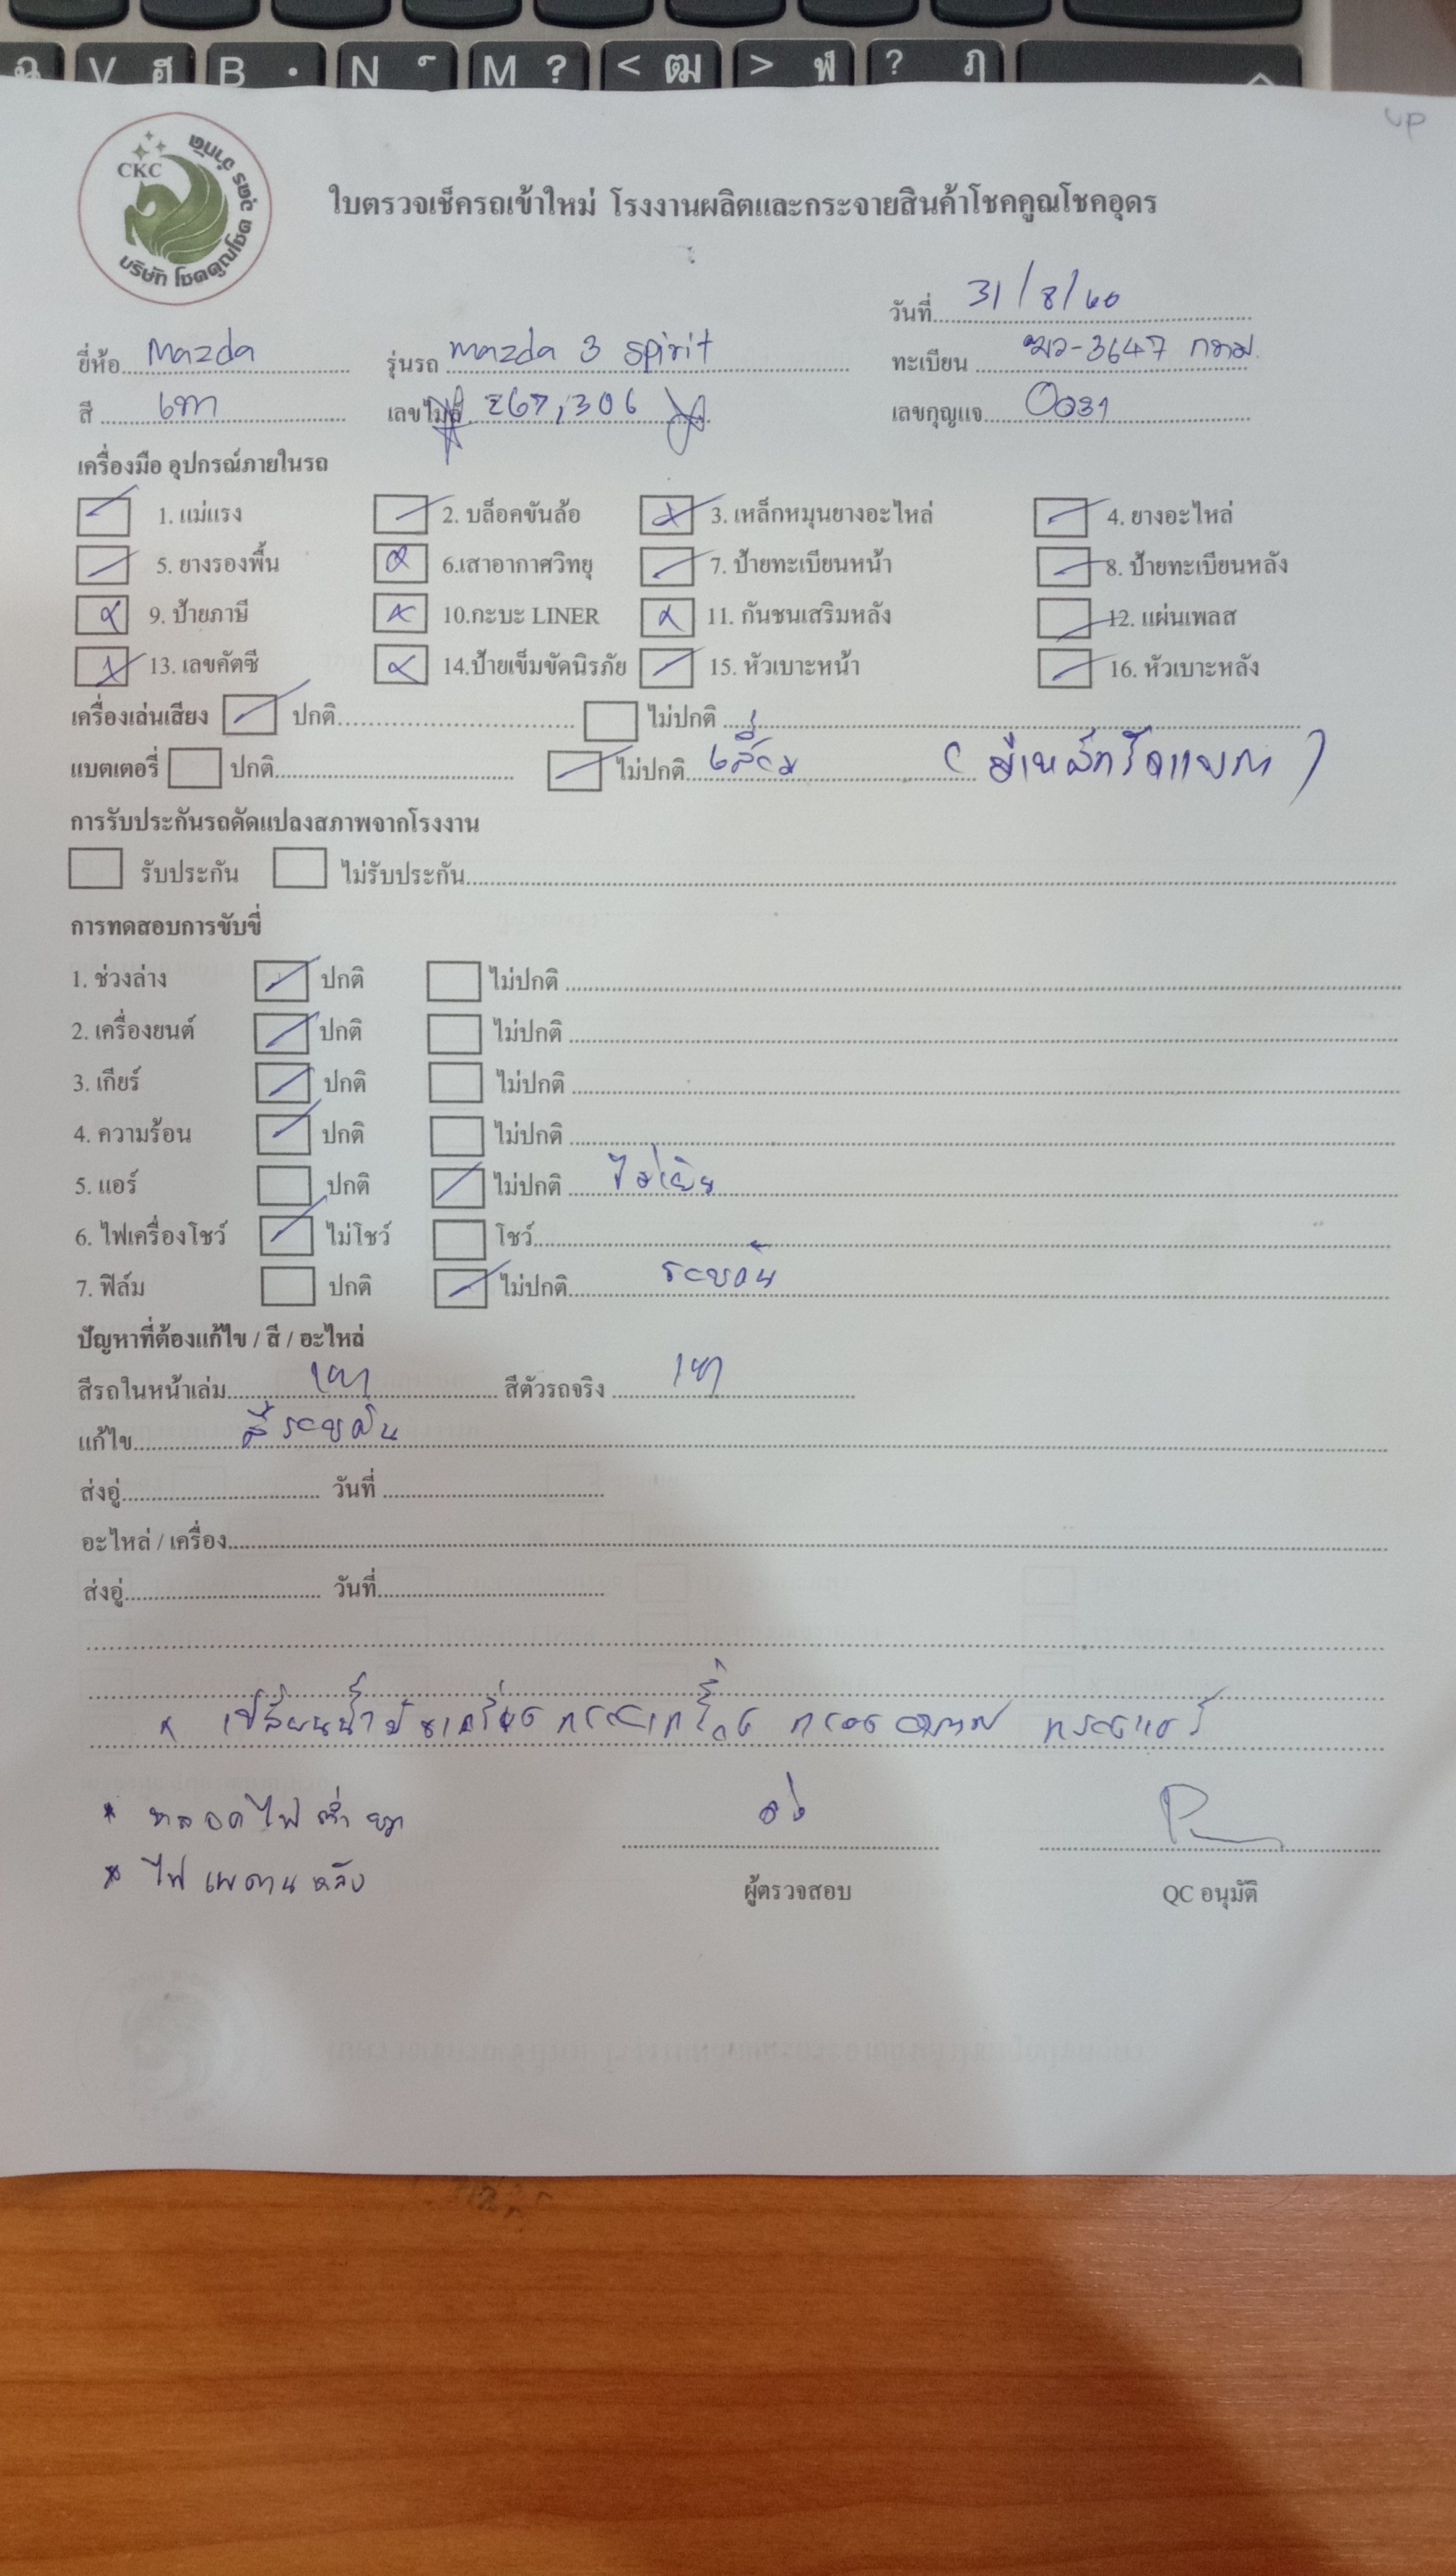 ฉ V ฮ B . N ั M ? < ฒ > ฬ ? ฦ
UP
CKC
บริษัท โชคคูณโชค ตะวัน จำกัด
ใบตรวจเช็ครถเข้าใหม่ โรงงานผลิตและกระจายสินค้าโชคคูณโชคอุดร
วันที่ 31/8/60
ยี่ห้อ Mazda รุ่นรถ mazda 3 spirit ทะเบียน 3647 กทม.
สี เทา เลขไมล์ 267,306 เลขกุญแจ 0031
เครื่องมือ อุปกรณ์ภายในรถ
1. แม่แรง 2. บล็อคขันล้อ 3. เหล็กหมุนยางอะไหล่ 4. ยางอะไหล่
5. ยางรองพื้น 6.เสาอากาศวิทยุ 7. ป้ายทะเบียนหน้า 8. ป้ายทะเบียนหลัง
9. ป้ายภาษี 10.กะบะ LINER 11. กันชนเสริมหลัง 12. แผ่นเพลส
13. เลขคัตซี 14.ป้ายเข็มขัดนิรภัย 15. หัวเบาะหน้า 16. หัวเบาะหลัง
เครื่องเล่นเสียง ปกติ ไม่ปกติ
แบตเตอรี่ ปกติ ไม่ปกติ เสื่อม (มีเหล็กรัดแบต)
การรับประกันรถดัดแปลงสภาพจากโรงงาน
รับประกัน ไม่รับประกัน
การทดสอบการขับขี่
1. ช่วงล่าง ปกติ ไม่ปกติ
2. เครื่องยนต์ ปกติ ไม่ปกติ
3. เกียร์ ปกติ ไม่ปกติ
4. ความร้อน ปกติ ไม่ปกติ
5. แอร์ ปกติ ไม่ปกติ ไม่เย็น
6. ไฟเครื่องโชว์ ไม่โชว์ โชว์
7. ฟิล์ม ปกติ ไม่ปกติ รอบคัน
ปัญหาที่ต้องแก้ไข / สี / อะไหล่
สีรถในหน้าเล่ม เทา สีตัวรถจริง เทา
แก้ไข สีรอบคัน
ส่งอู่ วันที่
อะไหล่ / เครื่อง
ส่งอู่ วันที่
* เปลี่ยนน้ำมันเครื่อง กรองเครื่อง กรองอากาศ กรองแอร์
* หลอดไฟต่ำ ขวา
* ไฟเพดานหลัง
ผู้ตรวจสอบ QC อนุมัติ